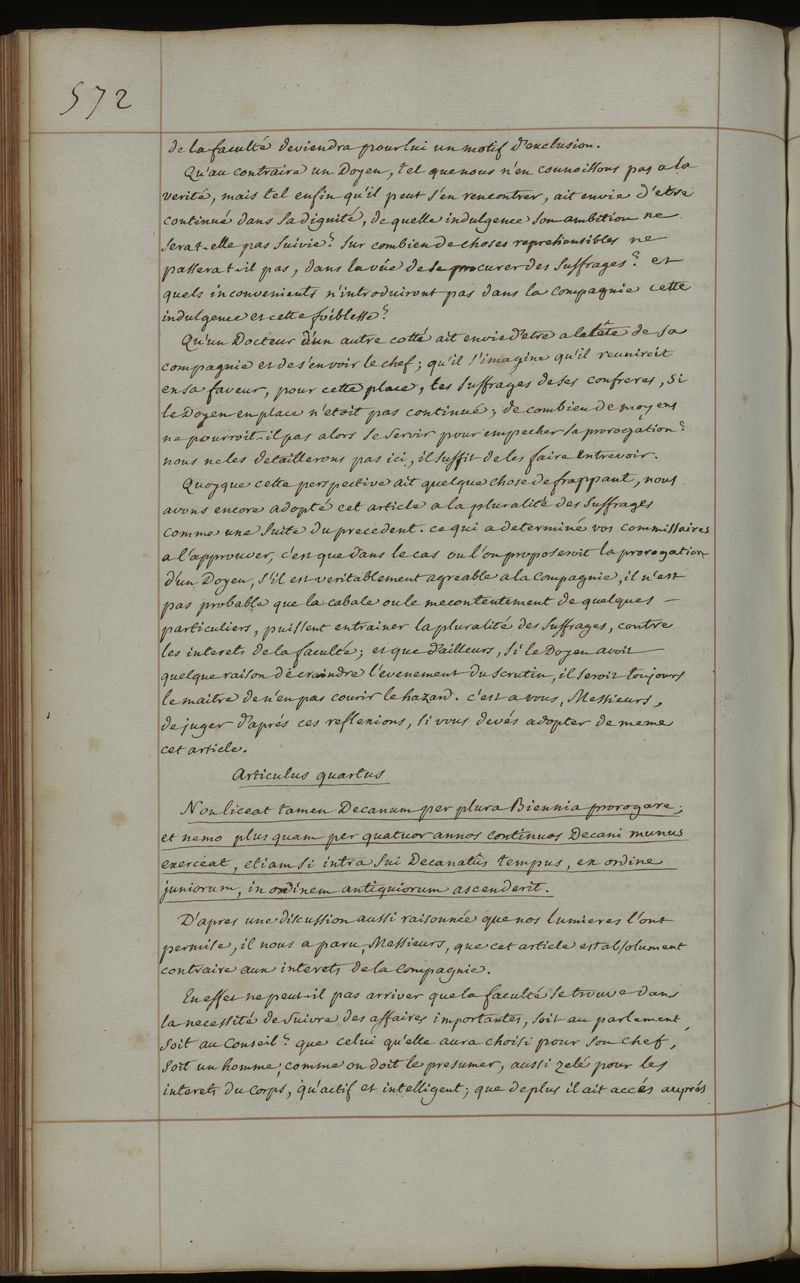 572
de la faculté deviendra pour lui un motif d'exclusion.
Qu'au contraire un Doyen, tel que nous n'en connoissons pas a la
verité, mais tel enfin qu'il peut s'en rencontrer, ait envie d'etre
continué dans sa dignité, de quelle indulgence son ambition ne
sera-t-elle pas suivie? sur combien de choses reprehensibles ne
passera t-il pas, dans la vüe de se procurer des suffrages? et
quels inconvenients n'introduiront pas dans la compagnie cette
indulgence et cette foiblesse?
Qu'un Docteur d'un autre cotté ait envie d'etre a la tête de sa
compagnie et de s'en voir le chef; qu'il s'imagine qu'il reuniroit
en sa faveur, pour cette place, les suffrages de ses confreres, si
le Doyen en place n'etoit pas continué; de combien de moyens
ne pourroit-il pas alors se servir pour empecher sa prorogation?
nous ne les detaillerons pas ici, il suffit de les faire entrevoir.
Quoyque cette perspective ait quelque chose de frappant, nous
avons encore adopté cet article a la pluralité des suffrages
comme une suite du precedent. ce qui a determiné vos commissaires
a l'approuver, c'est que dans le cas ou l'on proposeroit la prorogation
d'un Doyen, s'il est veritablement agreable a la compagnie, il n'est
pas probable que la cabale ou le mecontentement de quelques —
particuliers, puissent entrainer la pluralité des suffrages, contre
les interets de la faculté; et que d'ailleurs, si le Doyen avoit
quelque raison de craindre l'evenement du scrutin, il seroit toujours
le maitre de n'en pas courir le hazard. c'est a vous, Messieurs,
de juger d'aprés ces reflexions, si vous devés adopter de meme
cet article.
Articulus quartus
Non liceat tamen Decanum per plura Biennia prorogare;
et nemo plus quam per quatuor annos continuos Decani munus
exerceat, etiam si intra sui Decanatûs tempus, ex ordine
juniorum, in ordinem antiquiorum ascenderit.
D'apres une discussion aussi raisonnée que nos lumieres l'ont
permise, il nous a paru, Messieurs, que cet article est absolument
contraire aux interets de la compagnie.
En effet ne peut-il pas arriver que la faculté se trouve dans
la necessité de suivre des affaires importantes, soit au parlement,
soit au Conseil? que celui qu'elle aura choisi pour son chef,
soit un homme, comme on doit le presumer, aussi zelé pour les
interets du corps, qu'actif et intelligent; que de plus il ait accés auprés